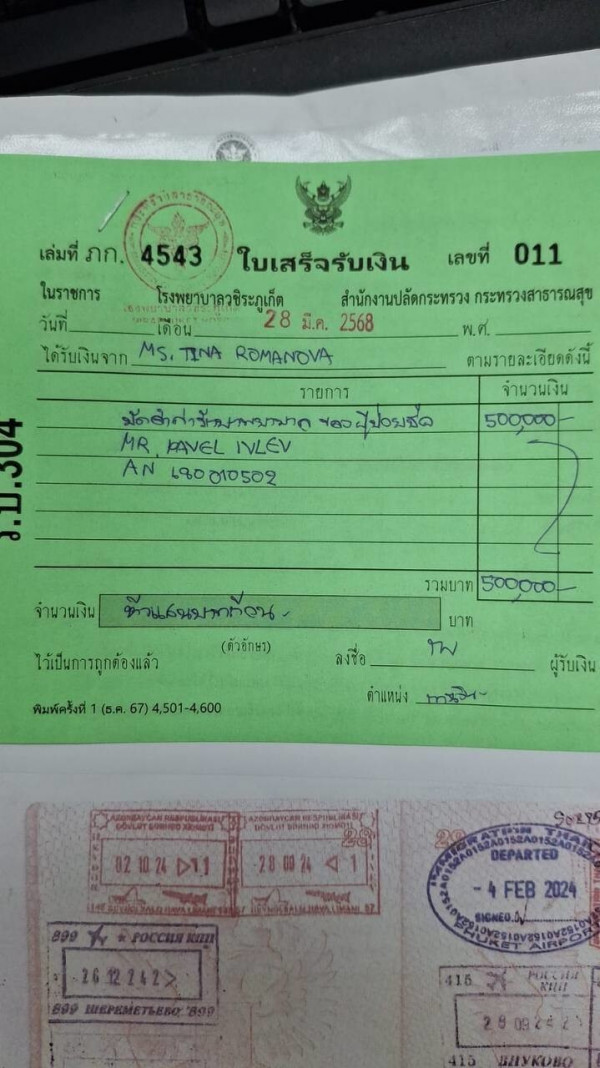 เล่มที่ ภก. 4543 ใบเสร็จรับเงิน เลขที่ 011
ในราชการ โรงพยาบาลวชิระภูเก็ต สำนักงานปลัดกระทรวง กระทรวงสาธารณสุข
วันที่ เดือน 28 มี.ค. 2568 พ.ศ.
ได้รับเงินจาก MS. TINA ROMANOVA ตามรายละเอียดดังนี้
รายการ จำนวนเงิน
มัดจำค่ารักษาพยาบาล ของผู้ป่วยชื่อ 500,000-
MR. PAVEL IVLEV
AN 680010502
รวมบาท 500,000-
จำนวนเงิน ห้าแสนบาทถ้วน- บาท
(ตัวอักษร)
ไว้เป็นการถูกต้องแล้ว ลงชื่อ ผู้รับเงิน
ตำแหน่ง
พิมพ์ครั้งที่ 1 (ธ.ค. 67) 4,501-4,600
ร.บ.304
AZƏRBAYCAN RESPUBLİKASI AZƏRBAYCAN RESPUBLİKASI
DÖVLƏT SƏRHƏD XİDMƏTİ DÖVLƏT SƏRHƏD XİDMƏTİ
02 10 24 11 28 09 24 1
28
IMMIGRATION THAI
DEPARTED
- 4 FEB 2024
SIGNED
PHUKET AIRPORT
899 РОССИЯ КПП
26 12 24 2
899 ШЕРЕМЕТЬЕВО 899
415 РОССИЯ
КПП
28 09 24 2
415 ВНУКОВО